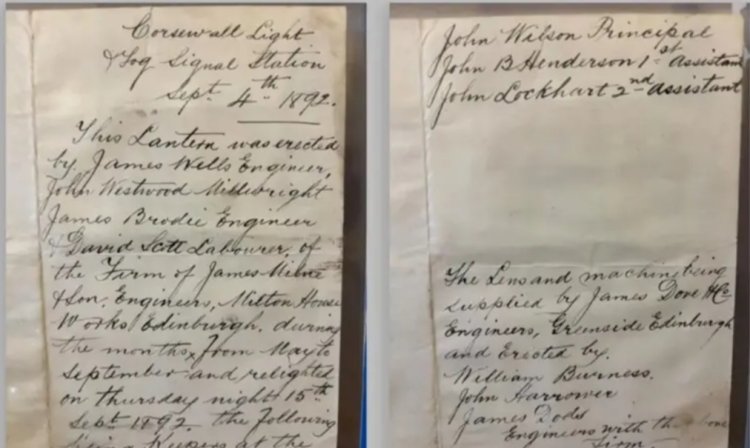 Corsewall Light
& Fog Signal Station
Sept. 4th 1892.
This Lantern was erected
by James Wells Engineer,
John Westwood Millwright
James Brodie Engineer
& David Scott Labourer, of
the Firm of James Milne
& Son, Engineers, Milton House
Works Edinburgh. during
the months from May to
September and relighted
on Thursday night 15th
Sept 1892. the following
being Keepers at the
John Wilson Principal
John B Henderson 1st assistant
John Lockhart 2nd assistant
The Lens and machine being
supplied by James Dove & Co
Engineers, Greenside Edinburgh
and Erected by.
William Burness.
John Harrower
James Dods
Engineers with the above
Firm